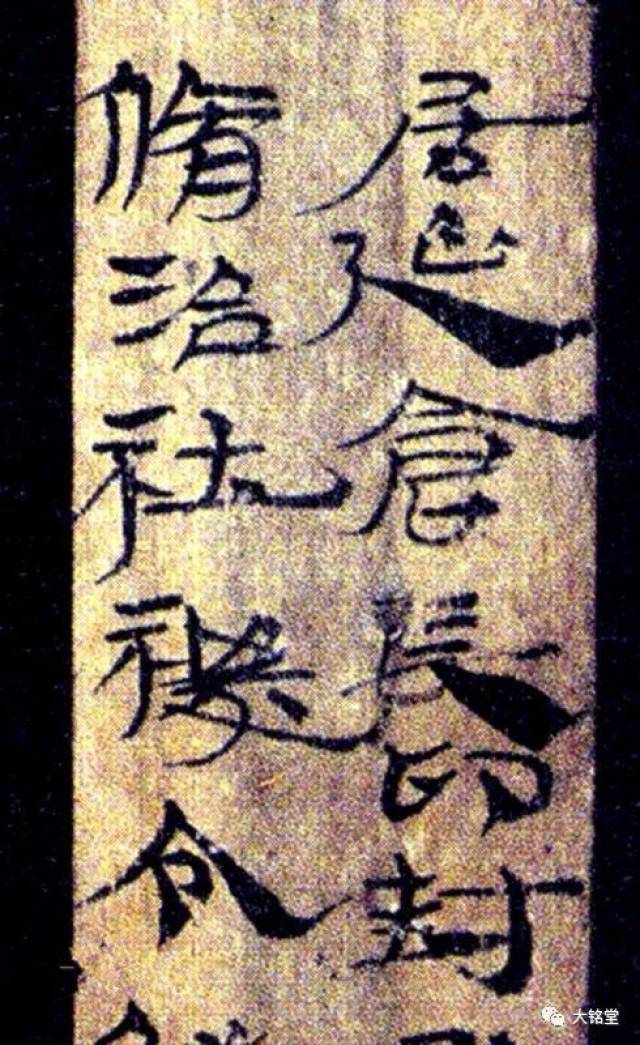 居延倉長印封
脩治社稷令
大铭堂